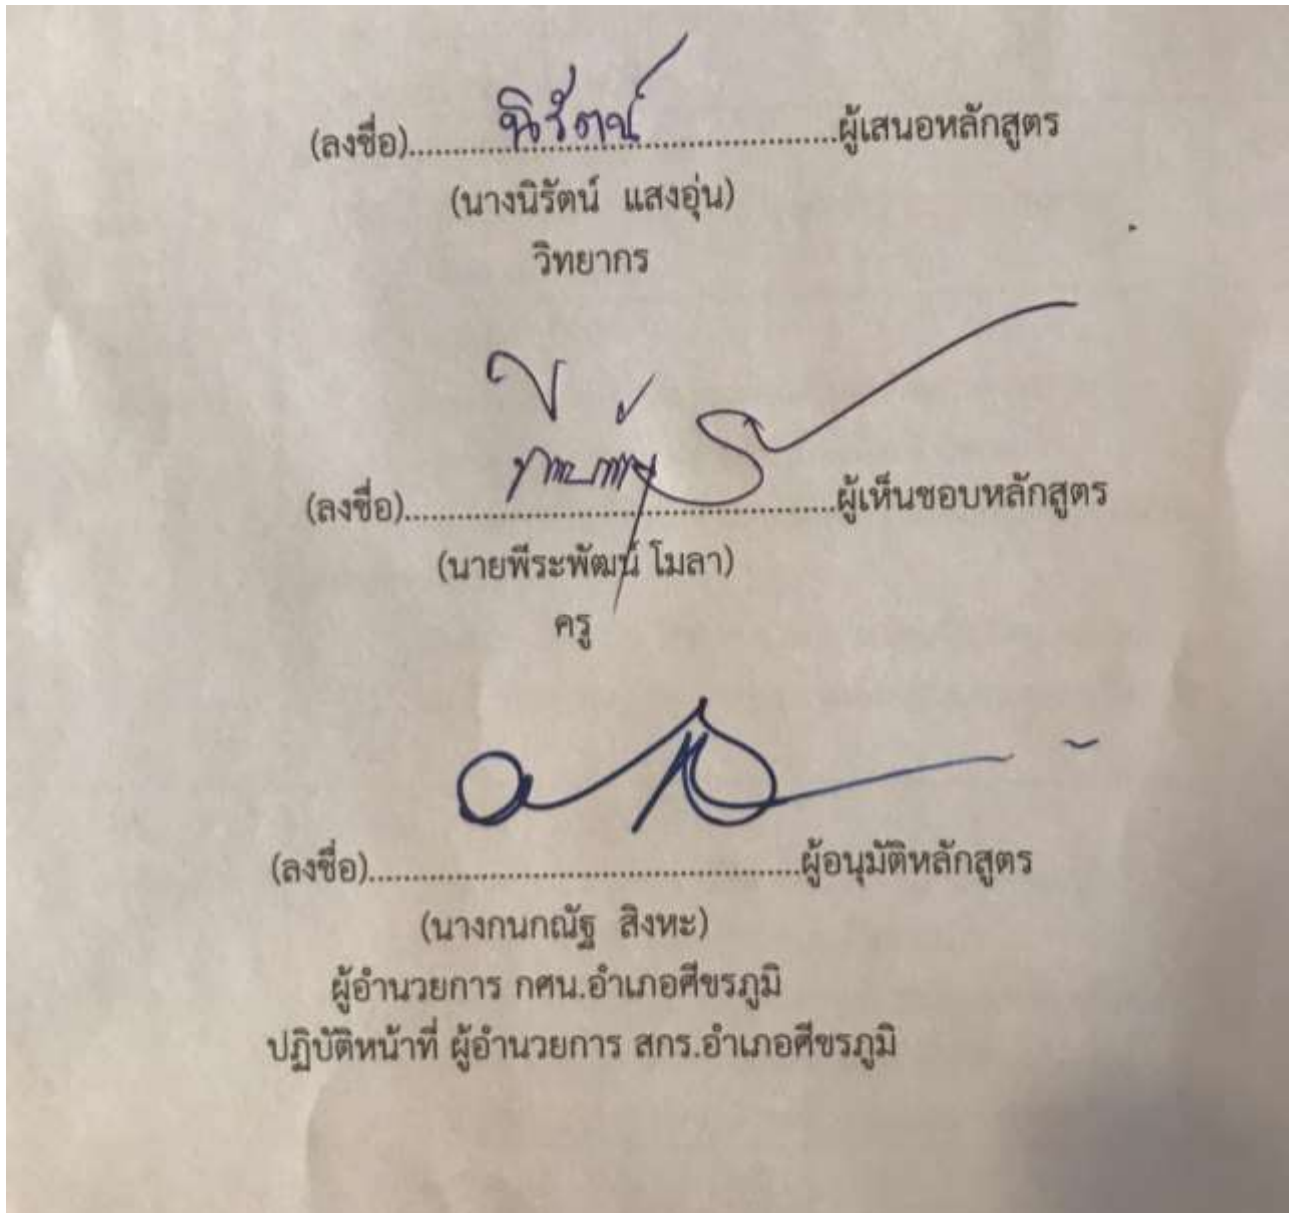 (ลงชื่อ)......นิรัตน์......ผู้เสนอหลักสูตร
(นางนิรัตน์ แสงอุ่น)
วิทยากร
(ลงชื่อ)............ผู้เห็นชอบหลักสูตร
(นายพีระพัฒน์ โมลา)
ครู
(ลงชื่อ)............ผู้อนุมัติหลักสูตร
(นางกนกณัฐ สิงหะ)
ผู้อำนวยการ กศน.อำเภอศีขรภูมิ
ปฏิบัติหน้าที่ ผู้อำนวยการ สกร.อำเภอศีขรภูมิ